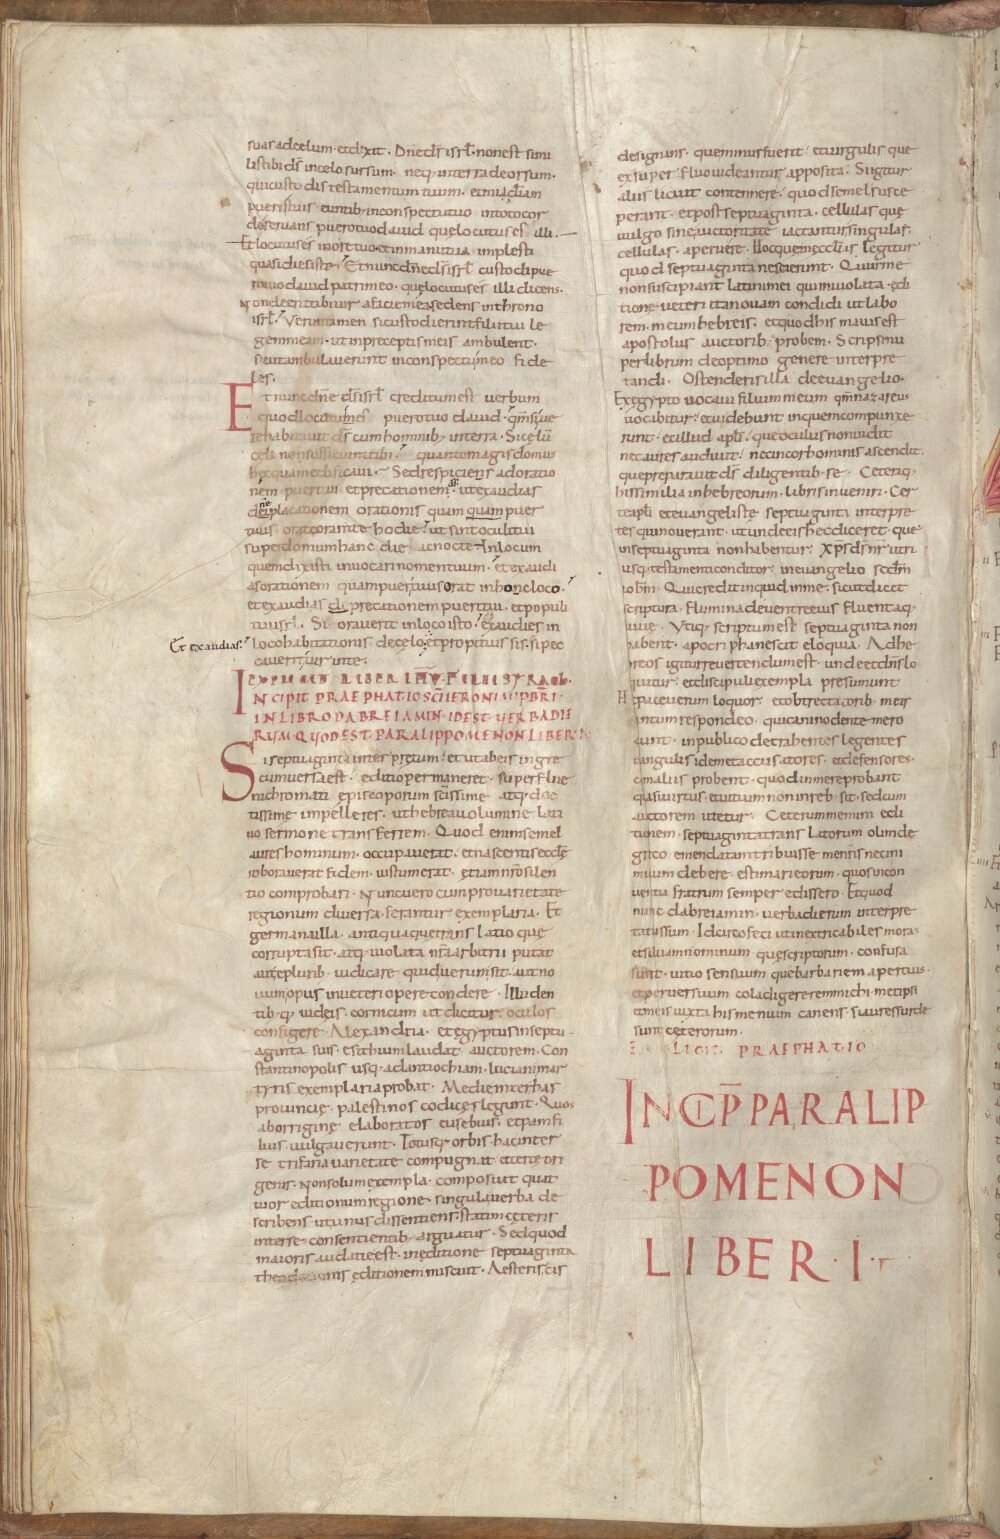 suas ad celum · et dixit · Dne ds isrl · non est simi
lis tibi ds in celo sursum · neq; in terra deorsum ·
qui custodis testamentum tuum · et mi̅cdiam
pueris tuis euntib; in conspectu tuo in toto cor
de seruans puero tuo dauid que locutus es illi ·
Et locutus es in ore tuo et in manu tua implesti
quasi die sisto · Et nunc dne ds isrl custodi pue
ro tuo dauid patri meo · que locutus es illi dicens ·
Non deerit tibi uir a facie mea sedens in throno
isrl · Verum tamen si custodierint filii tui le
gem meam · ut in preceptis meis ambulent ·
Sicut ambulauerunt in conspectu meo fide
les ·
Et nunc dne ds isrl creditum est uerbum
quod locutus es puero tuo dauid · qm sique
rehabitauit ds cum hominib; in terra · Si celu
celi non sufficiunt tibi · quanto magis domus
hec quam edificaui · Sed respiciens ad oratio
nem pueri tui · et precationem · ut exaudias
deprecationem orationis quam quam puer
tuus orat coram te hodie · ut sint oculi tui
super domum hanc die ac nocte · In locum
quem dixisti inuocari nomen tuum · et exaudi
as orationem quam puer tuus orat in hoc loco ·
et exaudias deprecationem pueri tui · et populi
tui isrl · Si orauerit in loco isto · exaudies in
Et exaudias · loco habitationis de celo et propitius sis · si pec
cauerit uir in te ·
EXPLICIT LIBER
INCIPIT PRAEPHATIO SCI IERONIMI PBRI ·
IN LIBRO DABREIAMIN · ID EST VERBA DIE
RVM QVOD EST PARALIPPOMENON LIBER I
Si septuaginta interpretum · et ut ab eis in gre
cum uersa est · editio permaneret · superflue
mi chromati episcoporum scissime atq; doc
tissime impelleres · ut hebrea uolumine lati
no sermone transferrem · Quod enim semel
aures hominum · occupauerat · et nascentis eccle
roborauerat fidem · iustum erat · etiam nro silen
tio comprobari · Nunc uero cum pro uarietate
regionum diuersa · ferantur exemplaria · Et
germana illa · antiqua que translatio que
corrupta sit · atq; uiolata nra arbitrii putat
aut e plurib; iudicare quid uerum sit · aut no
uum opus in ueteri opere condere · Illuden
tib; q; iudeis · cornicum ut dicitur · oculos
configere · Alexandria · et egyptus in septu
aginta suis · esithium laudat auctorem · Con
stantinopolis usq; ad antiochiam · luciani mar
tyris exemplaria probat · Medie inter has
prouincie · palestinos codices legunt · Quos
ab origine elaboratos eusebius · et pamfi
lius uulgauerunt · Totusq; orbis · hac inter
se trifaria uarietate compugnat et certe ori
genis · non solum exempla · composuit quat
tuor editionum e regione · singula uerba de
scribens ut unus dissentiens · statim ceteris
inter se consentientib; arguatur · Sed quod
maioris audatie est · in editione septuaginta
theodotionis editionem miscuit · Aesteriscis
designans · que minus fuerint · et uirgulis que
ex superfluo uideantur apposita · Si igitur
aliis licuit contennere · quod semel susce
perant · et post septuaginta · cellulas que
uulgo sine auctoritate iactantur singulas ·
cellulas · aperuere · Hoc que in eccliis legitur
quod septuaginta nescierint · Qur me
non suscipiant latini mei qui inuiolata · edi
tione ueteri ita nouam condidi ut labo
rem · meum hebreis · et quod his maius est
apostolis auctorib; probem · Scripsi nu
per librum de optimo genere interpre
tandi · Ostendens illa de euangelio ·
Ex egypto uocaui filium meum qm nazareus
uocabitur · et uidebunt in quem compunxe
runt · et illud apli · que oculus non uidit
nec aures audiuit · nec in cor hominis ascendit ·
que preparauit ds diligentib; se · Ceteraq;
his similia in hebreorum · libris inueniri · Cer
te apli et euangeliste septuaginta interpre
tes qui nouerant · ut unde eis hec diceret · que
in septuaginta non habentur · XPS ds nr utri
usq; testamenti conditor · in euangelio scdm
iohm · Qui credit inquid in me · sicut dicit
scriptura · Flumina de uentre eius fluent aq;
uiue · Vtiq; scriptum est septuaginta non
abent · apocriphanescit eloquia · Ad he
breos igitur reuertendum est · unde et dns lo
quitur · et discipuli exempla presumunt
Hec pace ueterum loquor · et obtrectatorib; meis
tantum respondeo · qui canino dente me ro
dunt · in publico detrahentes legentes
in angulis idem et accusatores · et defensores ·
cum aliis probent · quod in me reprobant
quasi uirtus · et uitium non in reb; sit · sed cum
auctorem utetur · Ceterum memini edi
tionem · septuaginta translatorum olim de
greco emendatam tribuisse me nris nec ini
micum debere · estimari eorum · quos in con
uentu fratrum semper edissero · Et quod
nunc dabreiamin · uerba dierum interpre
tatus sum · Idcirco feci ut inextricabiles moras
et siluam nominum · que scriptorum · confusa
sunt · uitio sensuum que barbariem apertius ·
et per uersuum cola digererem · michi met ipsi
et meis iuxta hismenium canens si aures surde
sunt ceterorum ·
EXPLICIT PRAEPHATIO
INCIP PARALIP
POMENON
LIBER · I ·